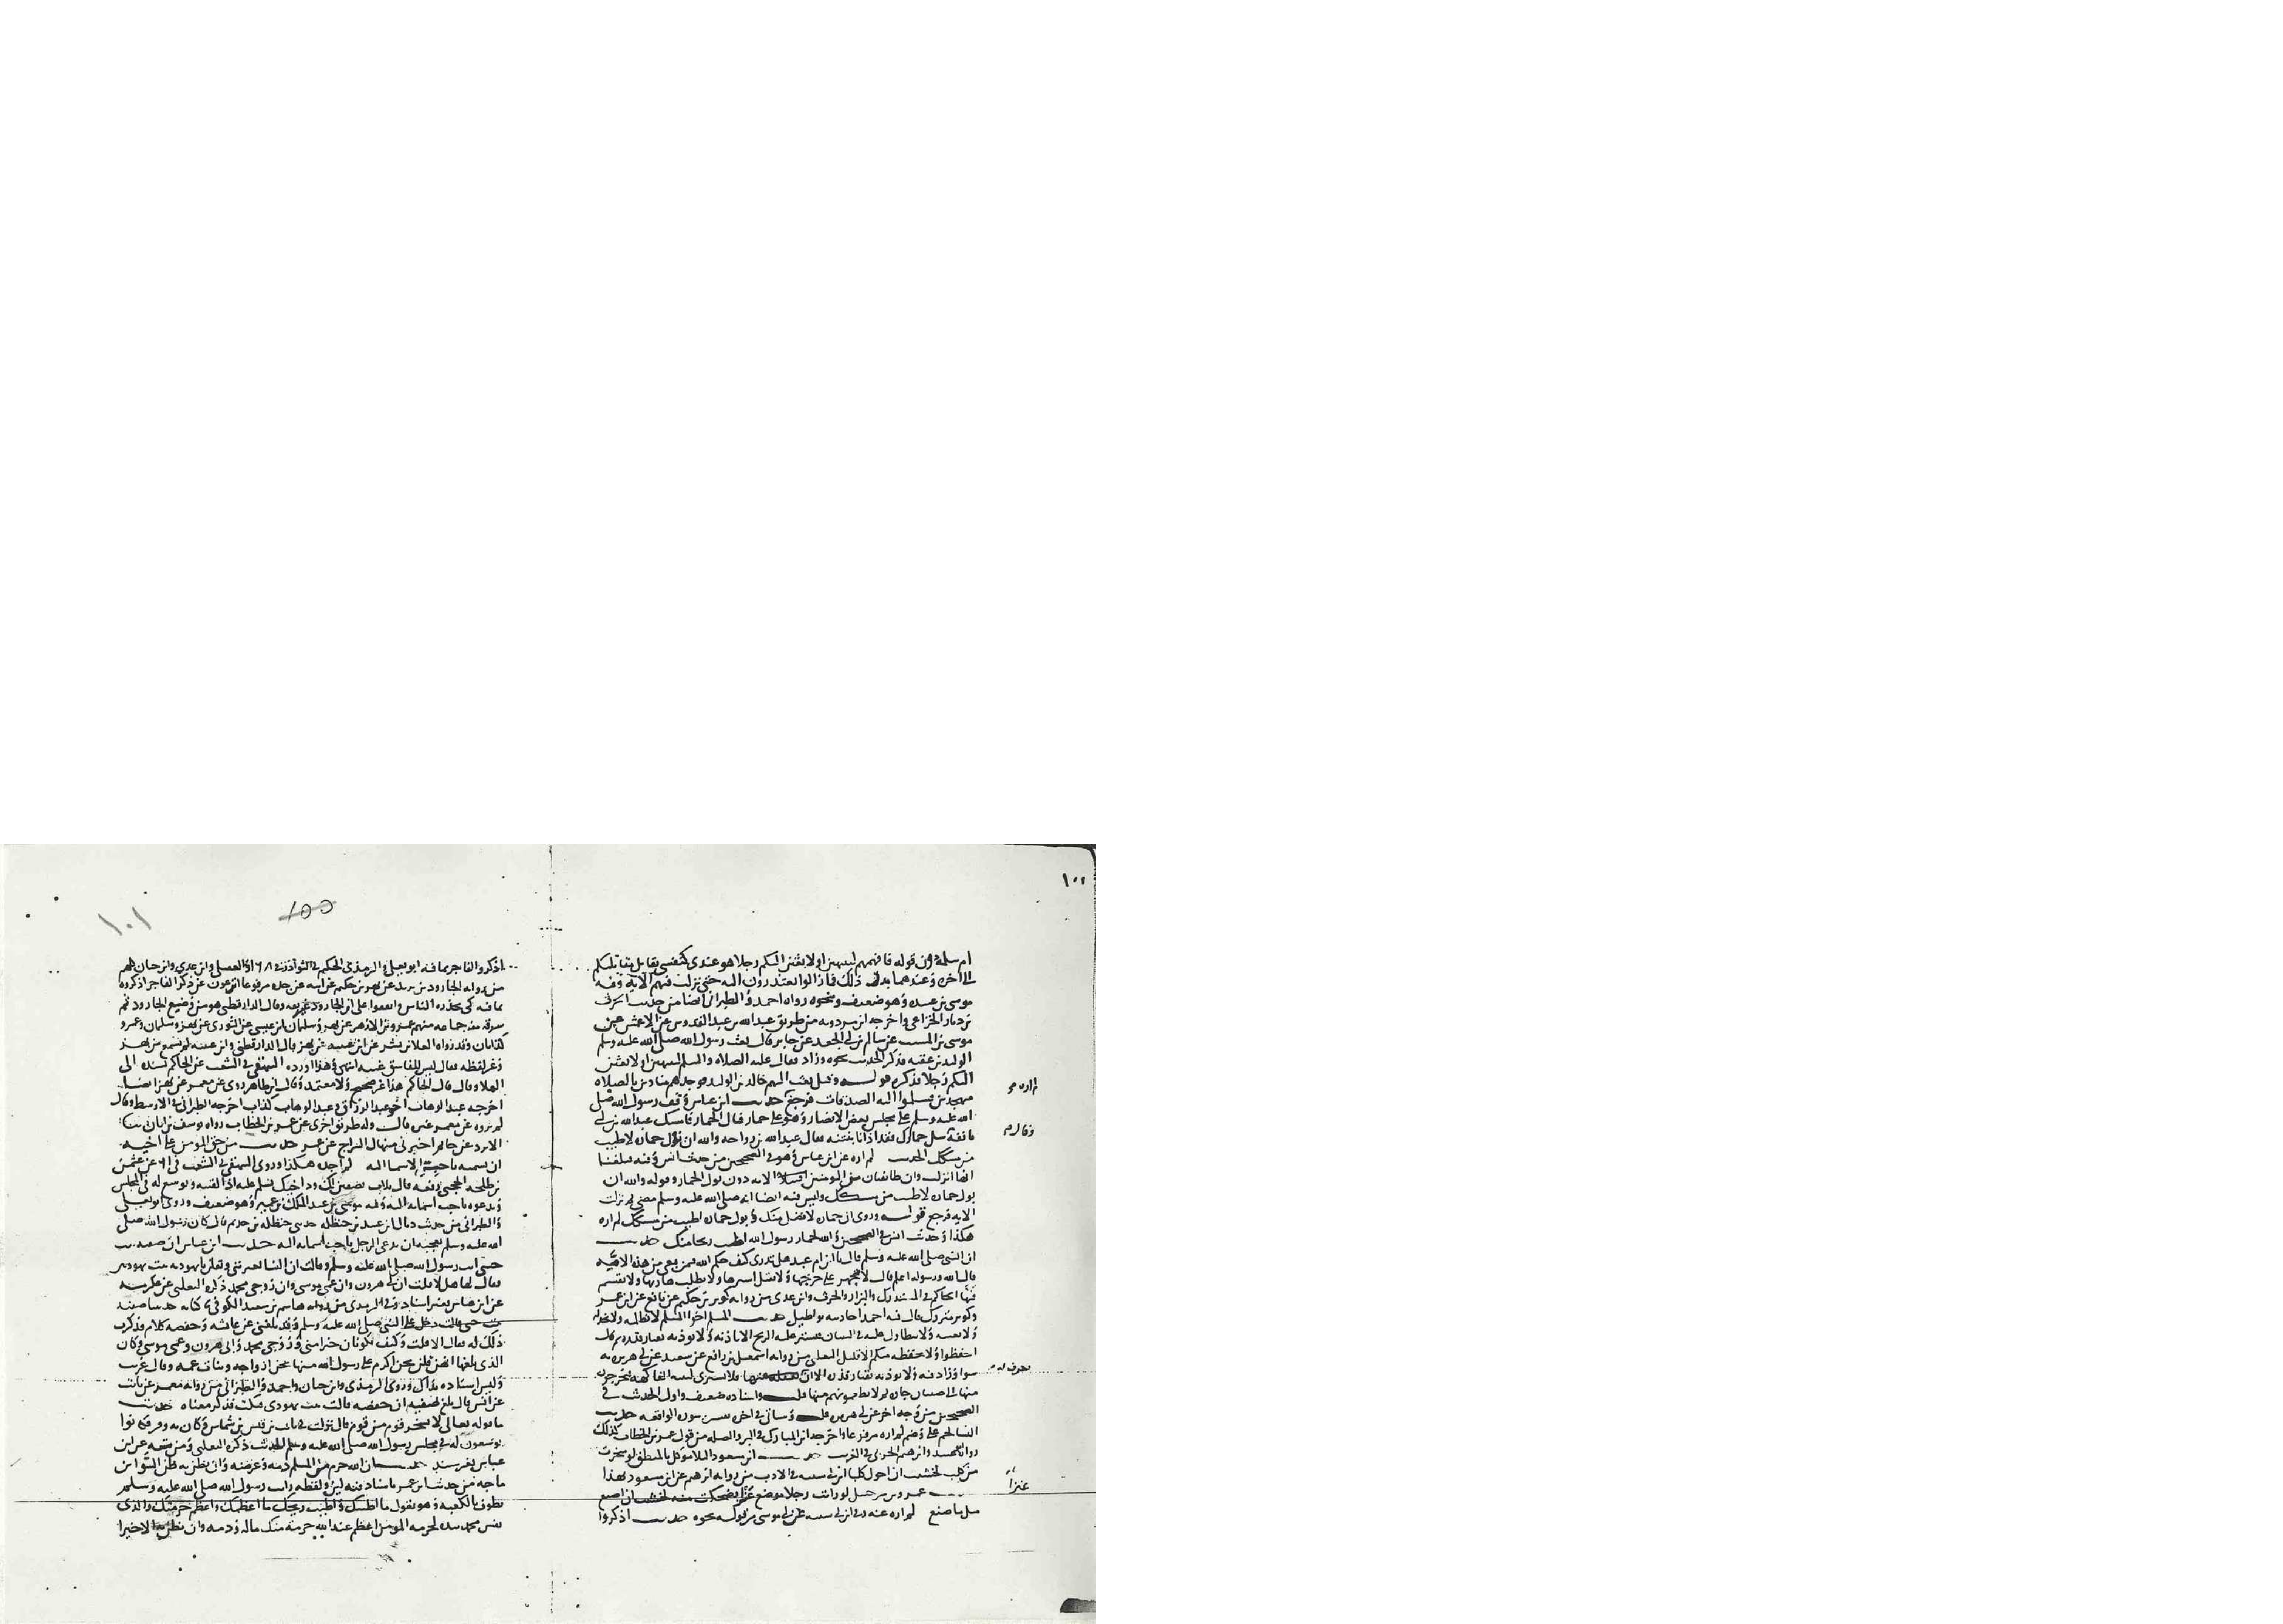 ١٠٠
ام سلمة وان قوله فاتهمهم لينتهين او لابعثن اليكم رجلا هو عندى كنفسى يقاتل مقاتلتكم
الى اخره وعندهما بدل ذلك فما زالوا يعتذرون اليه حتى نزلت فيهم الاية وفيه
موسى بن عبيده وهو ضعيف ونحوه رواه احمد والطبرانى ايضا من حديث الحرث
بن ضرار الخزاعى واخرجه ابن مردويه من طريق عبد الله بن عبد القدوس عن الاعمش عن
موسى بن المسيب عن سالم بن ابى الجعد عن جابر قال بعث رسول الله صلى الله عليه وسلم
الوليد بن عقبه فذكر الحديث نحوه وزاد فقال عليه الصلاه والسلم لينتهين او لابعثن
اليكم رجلا فذكره قوله وقيل بعث اليهم خالد بن الوليد فوجدهم منادين بالصلاه
متهجدين فسلموا اليه الصدقات فرجع حديث ابن عباس وقف رسول الله صلى
الله عليه وسلم على مجلس بعض الانصار وهو على حمار فبال الحمار فامسك عبد الله بن ابى
بانفه خل حمارك فقد اذانا نتنه فقال عبد الله بن رواحه والله ان بول حماره لاطيب
من مسكك الحديث لم اره عن ابن عباس وهو فى الصحيحين من حديث انس وفيه فبلغنا
انها انزلت وان طائفتان من المومنين اقتتلوا الايه دون بول الحمار وقوله والله ان
بول حماره لاطيب من مسكك وليس فيه ايضا انه صلى الله عليه وسلم مضى ثم نزلت
الايه فرجع قوله وروى ان حماره لافضل منك وبول حماره اطيب من مسكك لم اره
هكذا وحديث انس فى الصحيحين والله لحمار رسول الله اطيب ريحا منك حديث
ان النبى صلى الله عليه وسلم قال يا ابن ام عبد هل تدرى كيف حكم الله فيمن بغى من هذه الامة
قال الله ورسوله اعلم قال لا يجهز على جريحها ولا يقتل اسيرها ولا يطلب هاربها ولا يقسم
فيها الحاكم فى المستدرك والبزار والحرث وابن عدى من روايه كوثر بن حكيم عن نافع عن ابن عمر
وكوثر متروك قال فيه احمد احاديثه بواطيل حديث المسلم اخو المسلم لا يظلمه ولا يخذله
ولا يعيبه ولا يتطاول عليه فى البنيان فيستر عليه الريح الا باذنه ولا يوذيه بقتار قدره ثم قال
احفظوا ولا يحفظه منكم الا قليل الثعلبى من روايه اسمعيل بن رافع عن سعيد عن ابى هريره به
سوا وزاد فيه ولا يوذيه بقتار قدره الا ان يغرف له منها ولا يشترى لبنيه الفاكهه فيخرجون
منها الى صبيان جاره ثم لا يطعمونهم منها قلت واسناده ضعيف واول الحديث فى
الصحيحين من وجه اخر عن ابى هريره قلت وسياتى فى اخره سوره الواقعه حديث
النسا لحم على وضم لم اره مرفوعا واخرجه ابن المبارك فى البر والصله من قول عمر بن الخطاب كذلك
رواه ابو عبيد وابرهيم الحربى فى الغريب حديث ابن مسعود البلا موكل بالمنطق لو سخرت
من كلب لخشيت ان احول كلبا ابن ابى شيبه فى الادب من روايه ابرهيم عن ابن مسعود بهذا
حديث عمرو بن شرحبيل لو رايت رجلا يرضع عنزا فضحكت منه لخشيت ان اصنع
مثل ما صنع لم اره عنه وفى ابن ابى شيبه عن ابى موسى من قوله نحوه حديث اذكروا
وقال م
يغرف له م
عنزا
١٠١
100
اذكروا الفاجر بما فيه ابو يعلى والترمذى الحكيم فى النوادر فى ١٦٨ والعقيلى وابن عدى وابن حبان كلهم
من روايه الجارود بن يزيد عن بهز بن حكيم عن ابيه عن جده مرفوعا اترعون عن ذكر الفاجر اذكروه
بما فيه كى يحذره الناس واتفقوا على ان الجارود غير ثقه وقال الدارقطنى هو من وضع الجارود ثم
سرقه منه جماعه منهم عمرو بن الازهر عن بهز وسليمان بن عيسى عن الثورى عن بهز وسليمان وعمرو
كذابان وقد رواه العلا بن بشر عن ابن عيينه عن بهز قال الدارقطنى وابن عيينه لم يسمع من بهز
وغير لفظه فقال ليس للفاسق غيبه انتهى وهذا اورده البيهقى فى الشعب عن الحاكم بسنده الى
العلا وقال قال الحاكم هذا غير صحيح ولا معتمد وقال ابن طاهر روى عن معمر عن بهز ايضا
اخرجه عبد الوهاب اخو عبد الرزاق وعبد الوهاب كذاب اخرجه الطبرانى فى الاوسط وقال
لم يروه عن معمر غيره قال وله طريق اخرى عن عمر بن الخطاب رواه يوسف بن ابان ثنا
الابرد بن حاتم اخبرنى منهال السراج عن عمر حديث من حق المومن على اخيه
ان يسميه باحب الاسما اليه لم اجده هكذا وروى البيهقى فى الشعب فى ٦١ عن عثمن
بن طلحه الحجبى رفعه قال ثلاث يصفين لك ود اخيك تسلم عليه اذا لقيته وتوسع له فى المجلس
وتدعوه باحب اسمائه اليه وفيه موسى بن عبد الملك بن عمير وهو ضعيف وروى ابو يعلى
والطبرانى من حديث ذيال بن عبيد بن حنظله حدثنى جدى حنظله بن حذيم قال كان رسول الله صلى
الله عليه وسلم يعجبه ان يدعى الرجل باحب اسمائه اليه حديث ابن عباس ان صفيه بنت
حيى اتت رسول الله صلى الله عليه وسلم وقالت ان النسا يعيرننى ويقلن يا يهوديه بنت يهوديين
فقال لها هلا قلت ان ابى هرون وان عمى موسى وان زوجى محمد ذكره الثعلبى عن عكرمه
عن ابن عباس بغير اسناد وفى الترمذى من روايه هاشم بن سعيد الكوفى ثنا كنانه حدثتنا صفيه
بنت حيى قالت دخل على النبى صلى الله عليه وسلم وقد بلغنى عن عائشه وحفصه كلام فذكرت
ذلك له فقال الا قلت وكيف تكونان خيرا منى وزوجى محمد وابى هرون وعمى موسى وكان
الذى بلغها انهن قلن نحن اكرم على رسول الله منها نحن ازواجه وبنات عمه وقال غريب
وليس اسناده بذاك وروى الترمذى وابن حبان واحمد والطبرانى من روايه معمر عن ثابت
عن انس قال بلغ صفيه ان حفصه قالت بنت يهودى فبكت فذكر معناه حديث
ما قوله تعالى لا يسخر قوم من قوم قال نزلت فى ثابت بن قيس بن شماس وكان به وقر فكانوا
يوسعون له فى مجلس رسول الله صلى الله عليه وسلم الحديث ذكره الثعلبى ومن تبعه عن ابن
عباس بغير سند حديث ان الله حرم من المسلم دمه وعرضه وان يظن به ظن السوء ابن
ماجه من حديث ابن عمر باسناد فيه لين ولفظه رايت رسول الله صلى الله عليه وسلم
يطوف بالكعبه وهو يقول ما اطيبك واطيب ريحك ما اعظمك واعظم حرمتك والذى
نفس محمد بيده لحرمه المومن اعظم عند الله حرمه منك ماله ودمه وان نظن به الا خيرا